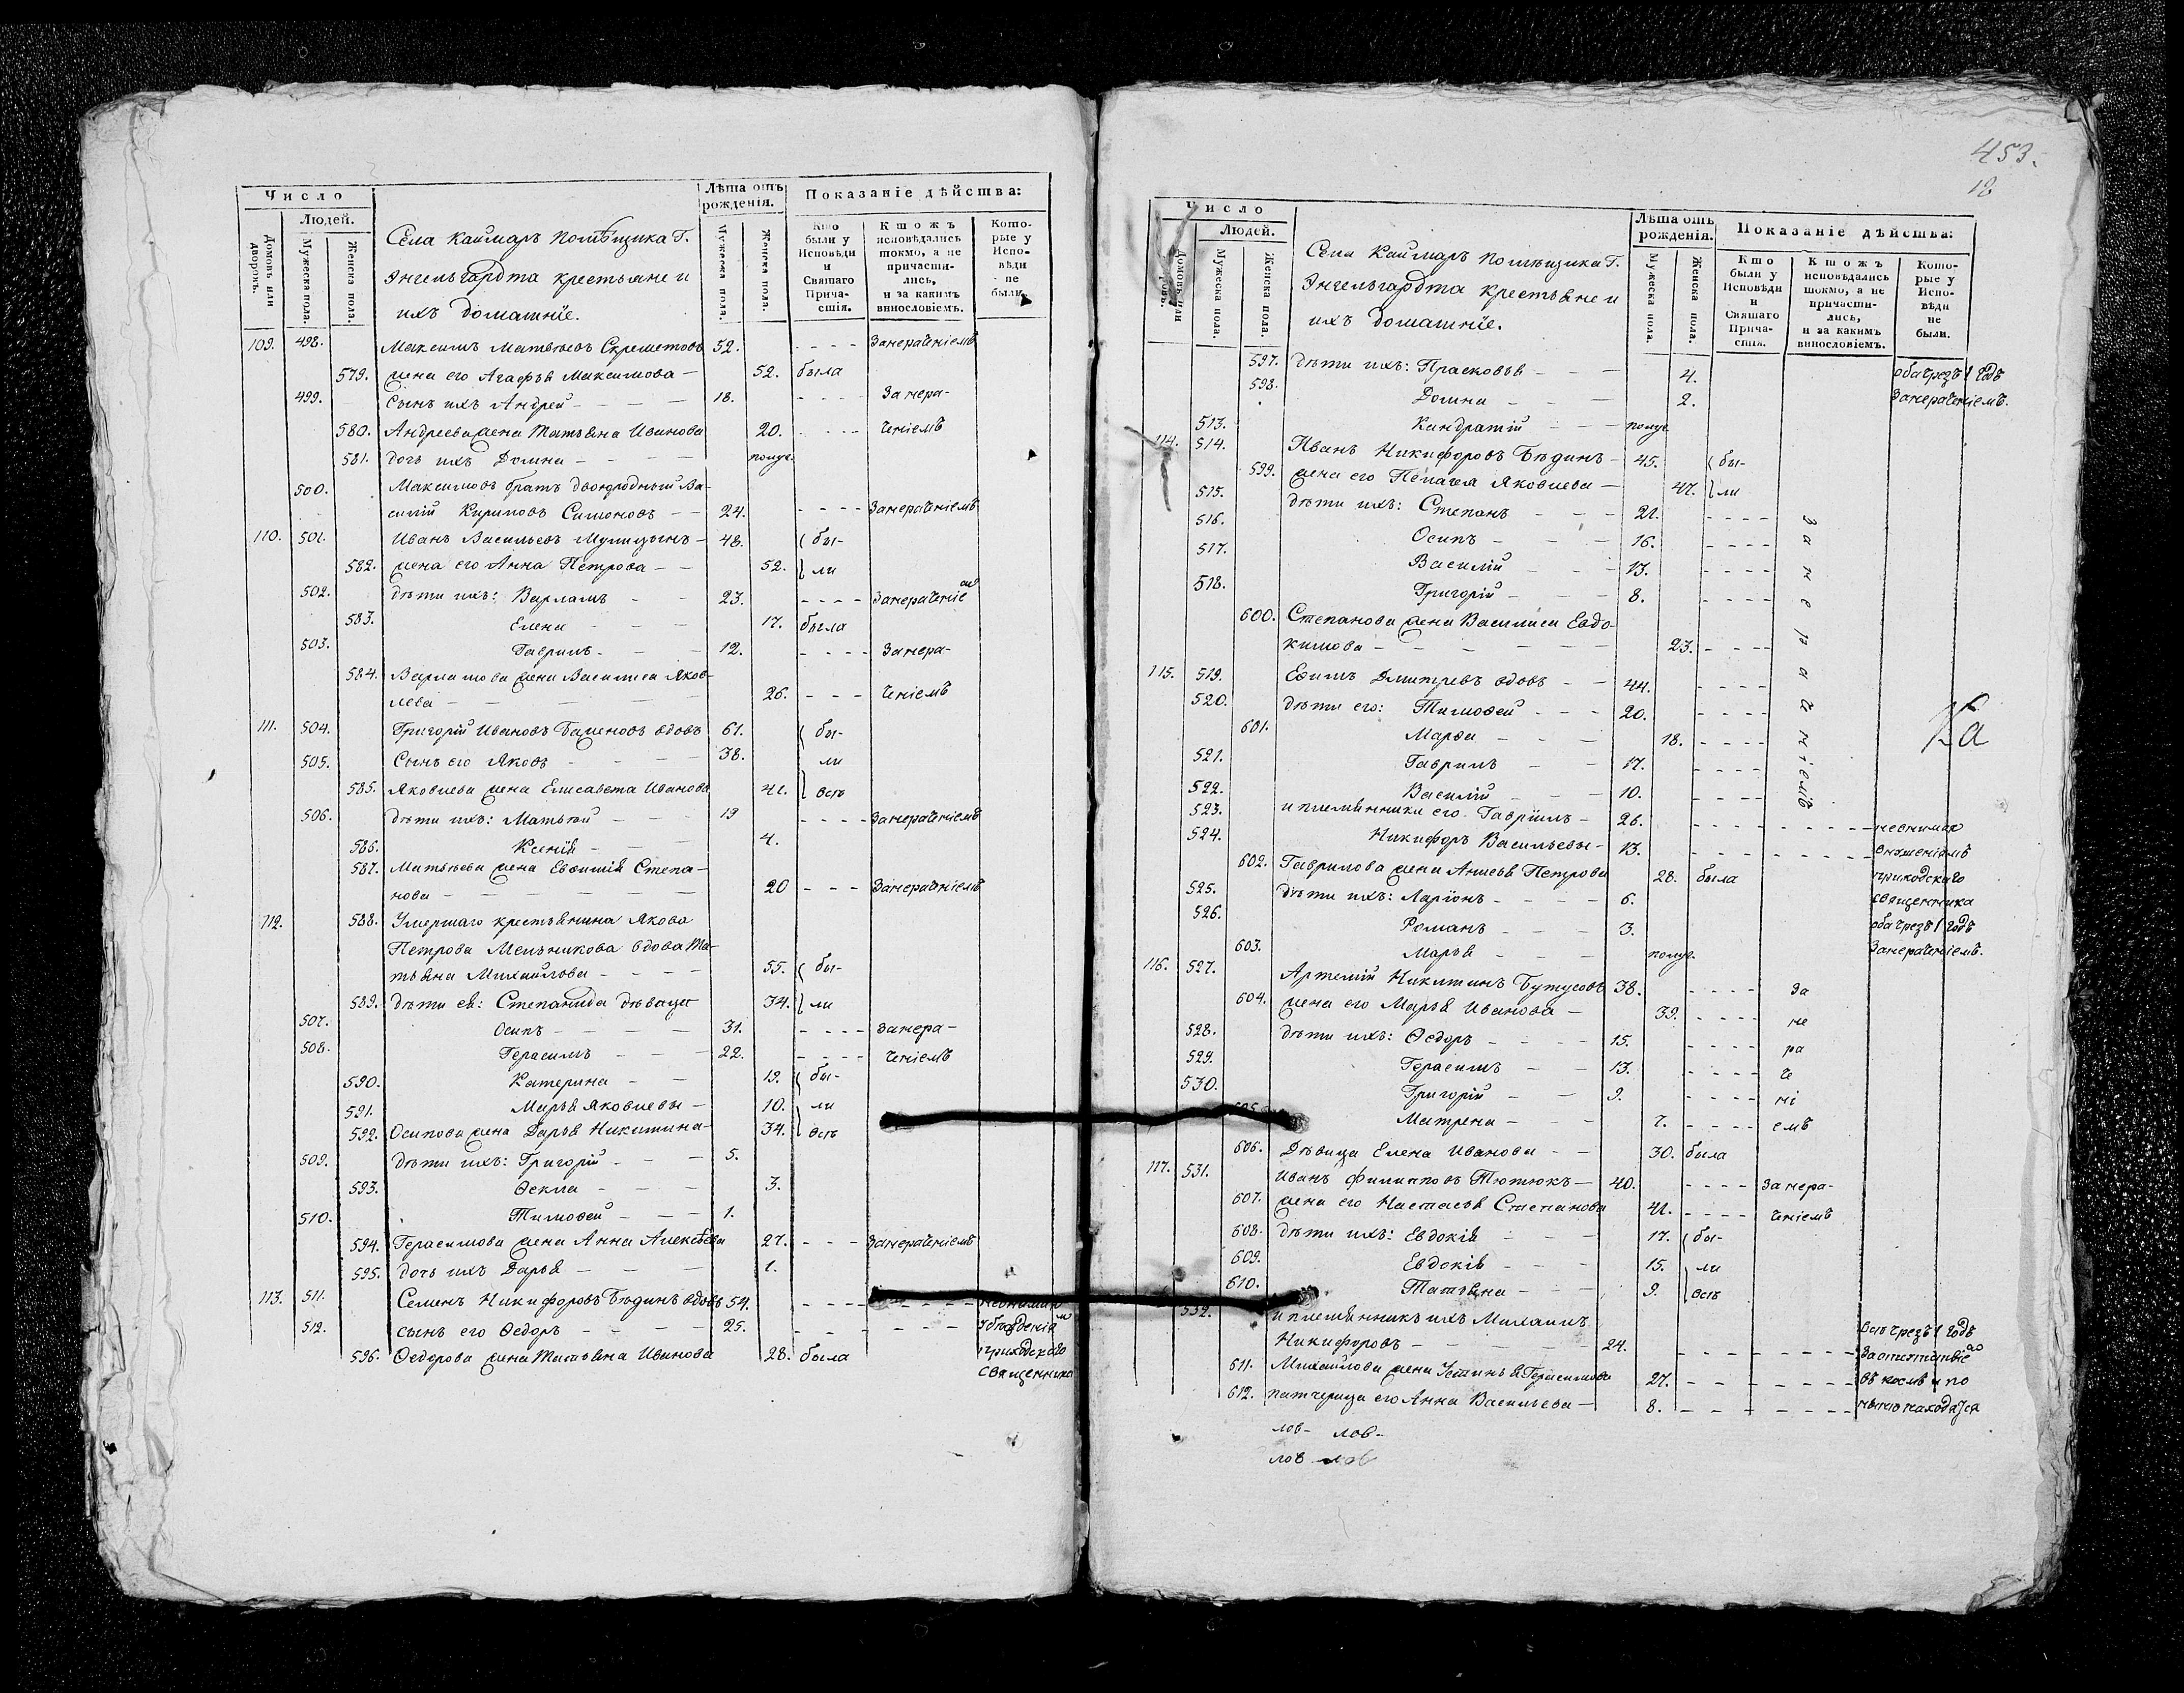 Число
Людей.
Домовъ или дворовъ.
Мужеска пола.
Женска пола.
Села Каймаръ помѣщика Г.
Энгельгардта крестьяне и
ихъ домашніе.
Лѣта отъ рожденія.
Мужеска пола.
Женска пола.
Показаніе дѣйства:
Кто были у Исповѣди и Святаго Прича- стія.
Кто жъ исповѣдались токмо, а не причасти- лись, и за какимъ винословіемъ.
Кото- рые у Испо- вѣди не были.
109. 498. Максимъ Матвѣевъ Скрешетовъ 52. - - - - Занераченіемъ
579. жена его Агафья Максимова — 52. была
499. Сынъ ихъ Андрей - — — — 18. - - - - Занера-
580. Андреева жена Татьяна Иванова 20. - - - - ченіемъ
581. дочь ихъ Домна - — — — полуг.
500. Максимовъ братъ двоюродный Ва-
силій Кириловъ Симоновъ — — 24. - - - - Занераченіемъ
110. 501. Иванъ Васильевъ — 48. бы-
582. жена его Анна Петрова — — 52. ли
502. дѣти ихъ: Варламъ — — 23. - - - - Занераченіемъ
583. Елена — — — 17. была
503. Гаврилъ - — — 12. - - - - Занера-
584. Варламова жена Василиса Яков-
лева — — — — 26. - - - ченіемъ
111. 504. Григорій Ивановъ Баженовъ вдовъ 61. бы-
505. Сынъ его Яковъ — — — — 38. ли
585. Яковлева жена Елисавета Иванова 41. всѣ
506. дѣти ихъ: Матвѣй — — — 19 - - - - Занераченіемъ
586. Ксенія — — — 4.
587. Матвѣева жена Евфимія Степа-
нова — — — — — — 20 - - - Занераченіемъ
112. 588. Умершаго крестьянина Якова
Петрова Мельникова вдова Та-
тьяна Михайлова - — — — 55. бы-
589. дѣти ея: Степанида дѣвица 34. ли
507. Осипъ — — — — 31. - - - - Занера-
508. Герасимъ — — — 22. - - - - ченіемъ
590. Катерина — — 19. бы-
591. Марья Яковлевы — 10. ли
592. Осипова жена Дарья Никитина — 34. всѣ
509. дѣти ихъ: Григорій - — — 5.
593. Ѳекла — — — 3.
510. Тимофей — — — 1.
594. Герасимова жена Анна Алексѣева 27. - - - Занераченіемъ
595. дочь ихъ Дарья — — — 1.
113. 511. Семенъ Никифоровъ Бѣдинъ вдовъ 54. - - - - - - - -
512. сынъ его Ѳедоръ — — — — 25. - - - - - - - убѣжденіямъ
596. Ѳедорова жена Татьяна Иванова 28. была приходскаго
священника
453.
18
Число
Людей.
Домовъ или
Мужеска пола.
Женска пола.
Села Каймаръ помѣщика Г.
Энгельгардта крестьяне и
ихъ домашніе.
Лѣта отъ рожденія.
Мужеска пола.
Женска пола.
Показаніе дѣйства:
Кто были у Исповѣди и Святаго Прича- стія.
Кто жъ исповѣдались токмо, а не причасти- лись, и за какимъ винословіемъ.
Кото- рые у Испо- вѣди не были.
597. дѣти ихъ: Прасковья - — — 4. оба чрезъ 1 годъ
598. Домна — — 2. Занераченіемъ.
513. Кандратій — — — полуг.
114. 514. Иванъ Никифоровъ Бѣдинъ — 45. бы-
599. жена его Пелагея Яковлева — 47. ли
515. дѣти ихъ: Степанъ — — — 21. - - - - За
516. Осипъ — — — 16. - - - -
517. Василій — — — 13. - - - - н
518. Григорій — — — 8. - - - - е
600. Степанова жена Василиса Евдо-
кимова — — — — — — 23. - - - - р
115. 519. Ефимъ Дмитревъ вдовъ — — 44. - - - - а
520. дѣти его: Тимофей — — — 20. - - - - ч
601. Марфа — — — 18. - - - - н
521. Гаврилъ — — 17. - - - - іемъ
522. Василій — — — 10. - - - -
523. и племянники его Гавріилъ — 26. - - - - - - - - - невнимая
524. Никифоръ Васильевы — 13. - - - - - - - - внушеніямъ
602. Гаврилова жена Анисья Петрова 28. была приходскаго
525. дѣти ихъ: Ларіонъ — — — — 6. священника
526. Романъ — — — 3. оба чрезъ 1 годъ
603. Марья — — — полуг. Занераченіемъ.
Ка
116. 527. Артемій Никитинъ Бутусовъ 38. - - - - За
604. жена его Марья Иванова — 39. - - - - не
528. дѣти ихъ: Ѳедоръ — — — — 15. - - - - ра
529. Герасимъ — — 13. - - - - че
530. Григорій — — 9. - - - - ні
605. Матрена — — — 7. - - - - емъ
606. Дѣвица Елена Иванова — — 30. была
117. 531. Иванъ Филиповъ Тютюкъ — 40. - - - - Занера-
607. жена его Настасья Степанова 41. - - - - ченіемъ
608. дѣти ихъ: Евдокія — — — 17. бы-
609. Евдокія — — — 15. ли
610. Татьяна — — — 9. всѣ
532. и племянникъ ихъ Михаилъ
Никифоровъ — — — — — 24. - - - - - - - - всѣ чрезъ 1 годъ
611. Михайлова жена Устинья Герасимова 27. - - - - - - -
612. патчерица его Анна Васильева — 8. - - - - - - - находятся
лов- лов-
лов лов